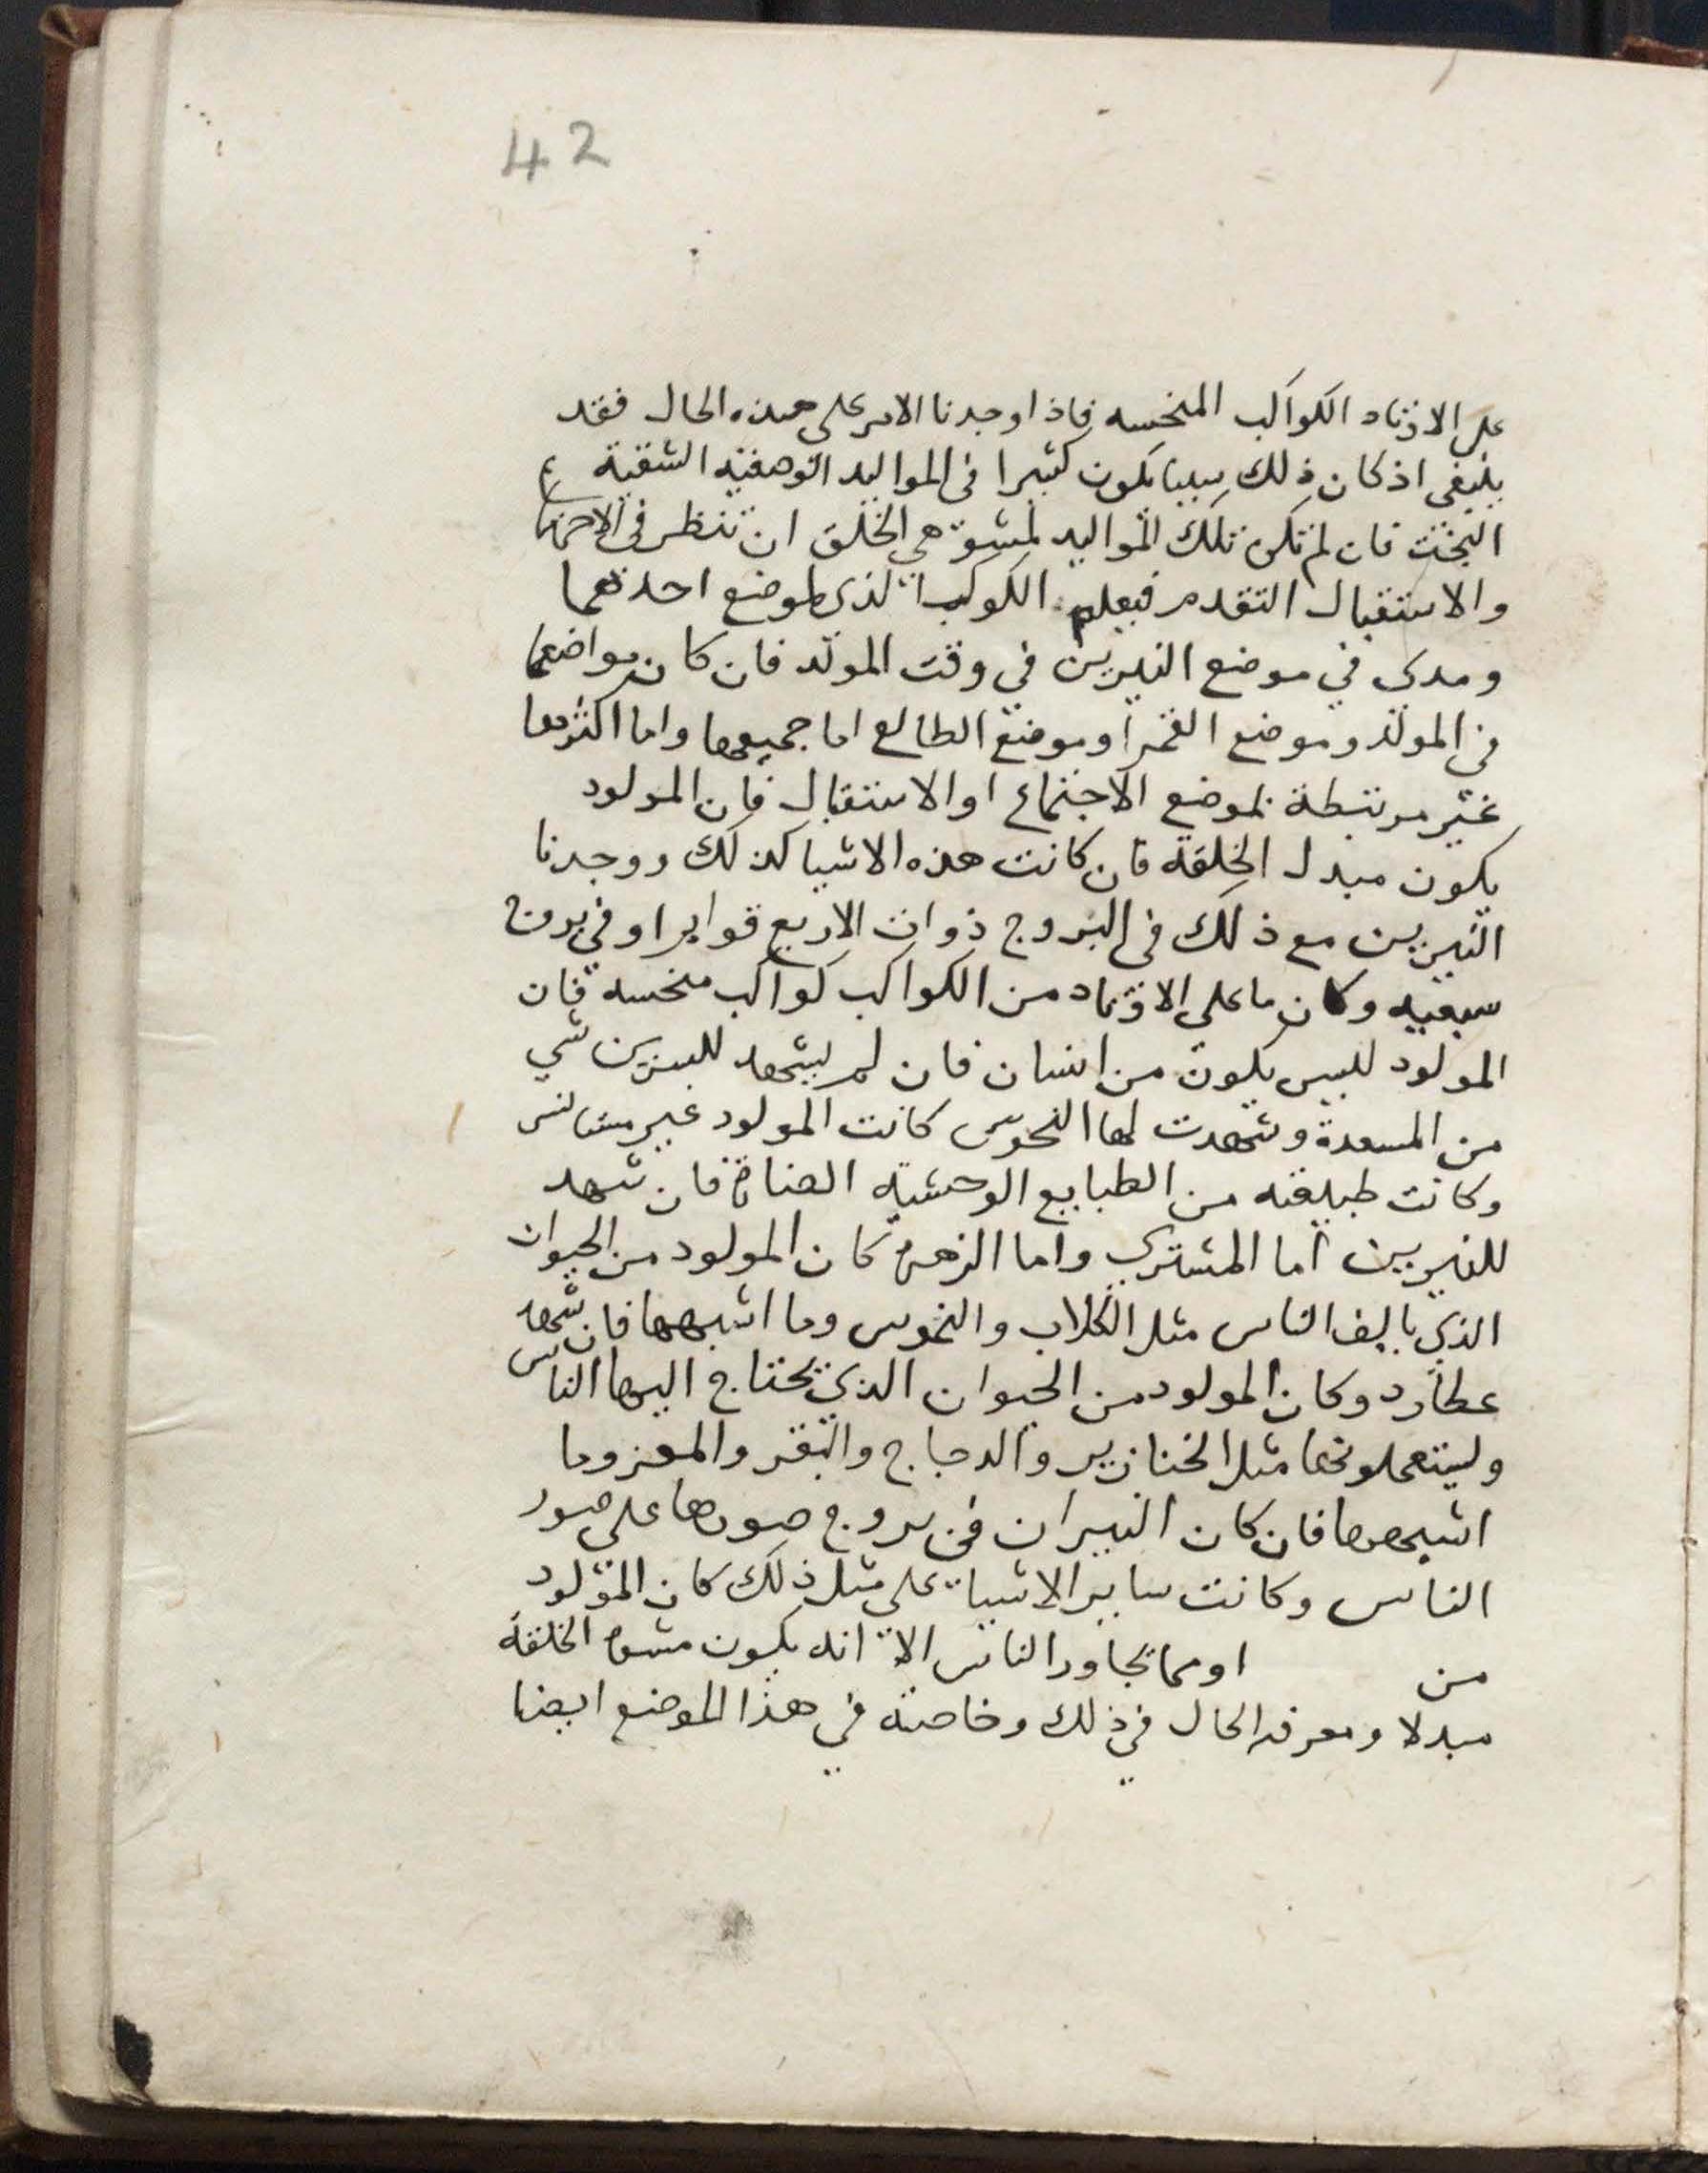 42
على الاوتاد الكواكب المنحسه فاذا وجدنا الامر على هذه الحال فقد
ينبغي اذ كان ذلك سببا يكون كثيرا في المواليد الوصفيه الشقية
البخت فان لم تكن تلك المواليد لمشوهي الخلق ان تنظر في الاجتماع
والاستقبال التقدم فيعلم الكوكب الذى لموضع احدهما
ومدى في موضع النيرين في وقت المولد فان كان مواضعها
في المولد وموضع القمر او موضع الطالع اما جميعها واما اكثرها
غير مرتبطة بموضع الاجتماع او الاستقبال فان المولود
يكون مبدل الخلقة فان كانت هذه الاشيا كذلك ووجدنا
النيرين مع ذلك في البروج ذوات الاربع قوايم او في بروج
سبعيه وكان ما على الاوتاد من الكواكب كواكب منحسه فان
المولود لليس يكون من انسان فان لم يشهد للنيرين شي
من المسعدة وشهدت لها النحوس كانت المولود غير مستانس
وكانت طبيعته من الطبايع الوحشية الضارة فان شهد
للنيرين اما المشتري واما الزهرة كان المولود من الحيوان
الذي يالف الناس مثل الكلاب والنحوس وما اشبهها فان شهد
عطارد وكان المولود من الحيوان الذي يحتاج اليها الناس
ويستعملونها مثل الخنازير والدجاج والبقر والمعز وما
اشبهها فان كان النيران في بروج صورها على صور
الناس وكانت ساير الاشيا على مثل ذلك كان المولود
من او مما يجاور الناس الا انه يكون مشوه الخلقة
مبدلا ومعرفه الحال في ذلك وخاصة في هذا الموضع ايضا